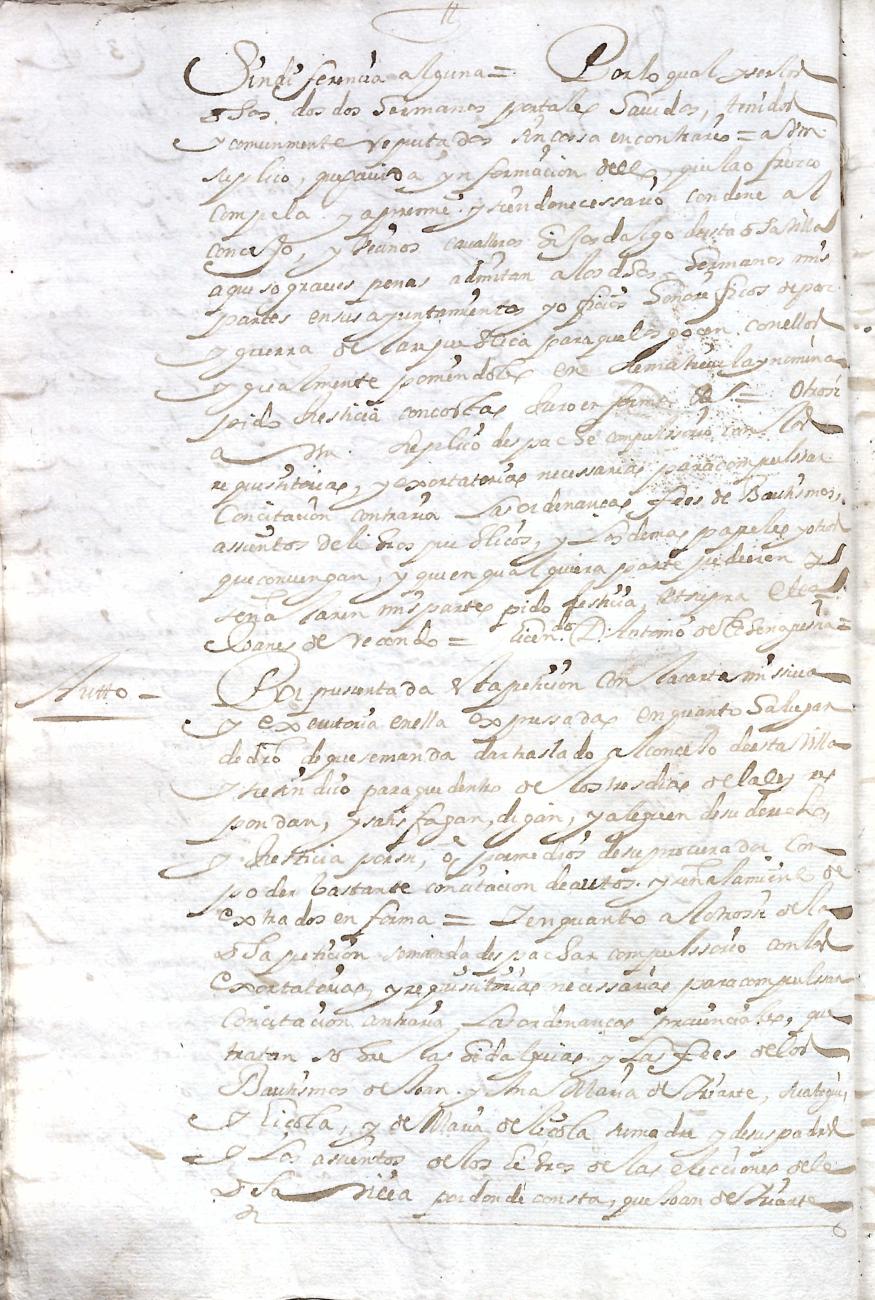 Sindiferencia alguna = Por lo qual y ser los
dhos dos dos hermanos portales havidos, tenidos
y comunmente reputados sin cossa en contrario = a Vm
suplico, que havida ynformacion dello, que la ofrezco
compela y apremie y siendo necessario condene al
concejo, y vecinos cavalleros hijosdalgo de esta dha Villa
a que so graves penas admitan a los dhos hermanos mis
partes en sus ayuntamientos y oficios honorificos de paz
y guerra de la republica para que los gocen con ellos
ygualmente poniendoles en su matricula y nomina
pido Justicia con costas Juro en forma = Otrosi
a Vm suplico despache compulsorio con los
requisitorias, y exortatorias necessarias para compulssar
Concitacion contraria Las ordenanças fees de Bautismos,
assientos de libros publicos, y los demas papeles y otros
que convengan, y que en qualquiera parte pidieren y
señalaren mis partes pido Justicia, Ut supra
Ibanes de recondo = licendo D. Antonio de
Autto Por presentada la peticion con la carta missiva
y executoria en ella expressadas en quanto ha lugar
de dro de que se manda dar traslado al concejo de esta Villa
y su sindico para que dentro de los tres dias de la ley res
pondan, y satisfagan, digan, y aleguen de su derecho,
y Justicia por si, o por medios de su procurador con
poder bastante con citacion de autos y señalamiento de
extrados en forma = y en quanto al otrossi de la
dha peticion se manda despachar compulssorio con los
Exortatorias, y requisitorias necessarias para compulssar
Concitacion contraria, Las ordenanças provinciales, que
tratan sobre las hidalguias y las fees de los
Bautismos de Joan y Ana Maria de Iriarte,
y Licola, y de Maria de licola su madre y de sus padres
y Los assientos de los Libros de las elecciones de le
dha Villa por donde consta, que Joan de Iriarte